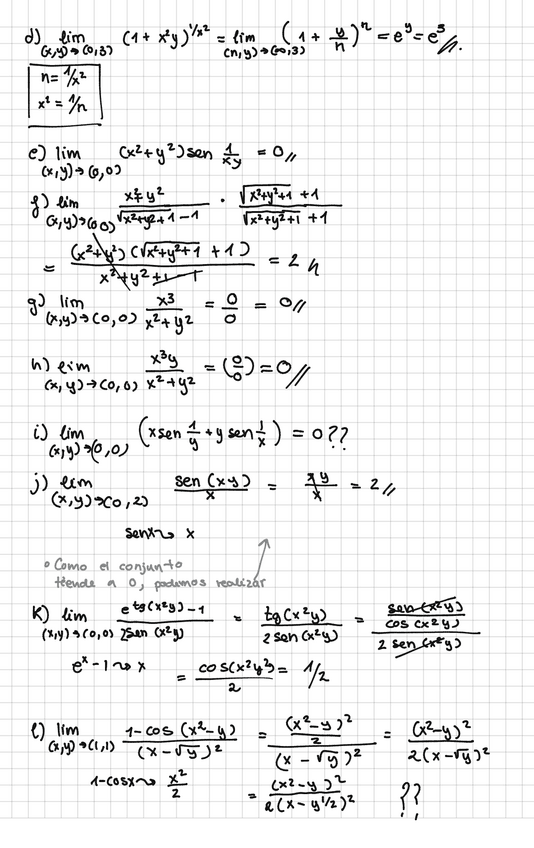 d) lim (x,y)→(0,3) (1 + x²y)^1/x² = lim (n,y)→(∞,3) (1 + y/n)^n = e^y = e³//.
n = 1/x²
x² = 1/n
e) lim (x,y)→(0,0) (x²+y²) sen 1/xy = 0//
f) lim (x,y)→(0,0) x²+y² / √x²+y²+1 − 1 · √x²+y²+1 + 1 / √x²+y²+1 + 1
= (x²+y²)(√x²+y²+1 + 1) / x²+y²+1−1 = 2//
g) lim (x,y)→(0,0) x3 / x²+y² = 0/0 = 0//
h) lim (x,y)→(0,0) x³y / x²+y² = (0/0) = 0//
i) lim (x,y)→(0,0) (x sen 1/y + y sen 1/x) = 0??
j) lim (x,y)→(0,2) sen (xy) / x = xy / x = 2//
senx ~> x
• Como el conjunto
tiende a 0, podemos realizar
K) lim (x,y)→(0,0) e^tg(x²y) − 1 / 2sen (x²y) = tg(x²y) / 2 sen (x²y) = sen (x²y) / cos (x²y) / 2 sen (x²y)
e^x − 1 ~> x
= cos(x²y²) / 2 = 1/2
l) lim (x,y)→(1,1) 1−cos (x²−y) / (x−√y)² = (x²−y)² / 2 / (x − √y)² = (x²−y)² / 2(x−√y)²
1−cosx ~> x²/2
= (x²−y)² / 2(x−y^1/2)² ??